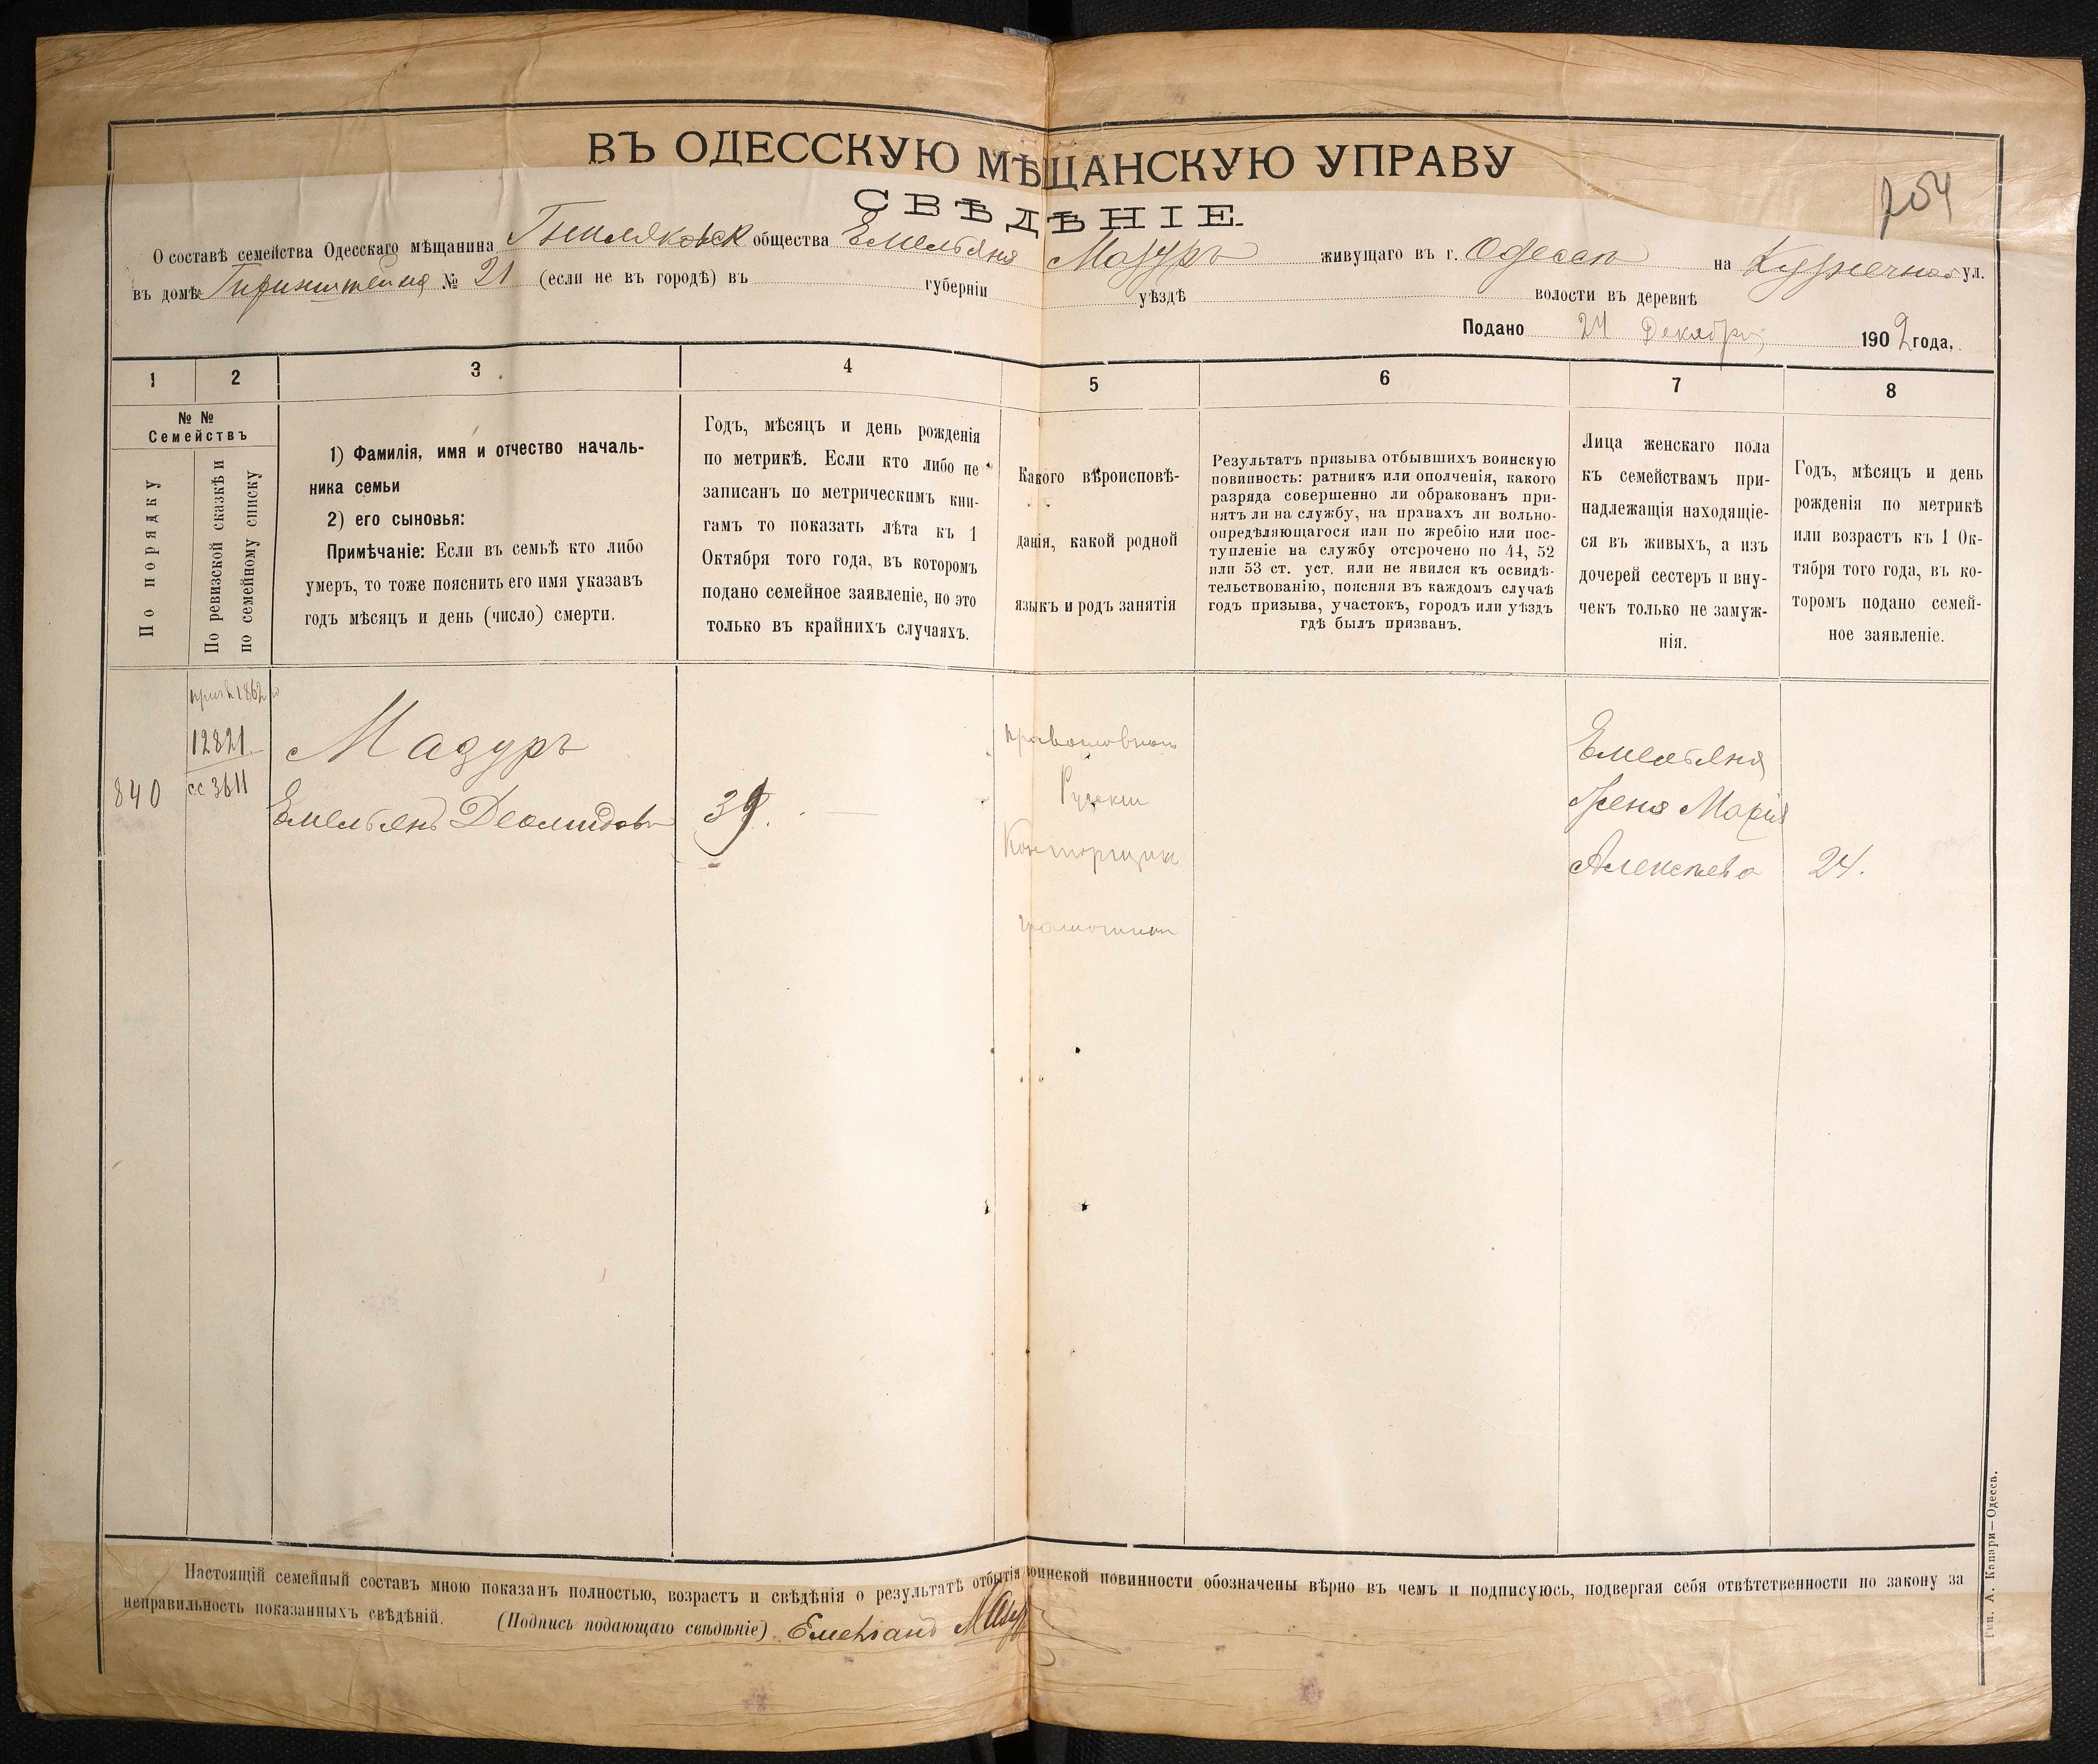 ВЪ ОДЕССКУЮ МѢЩАНСКУЮ УПРАВУ
СВѢДѢНІЕ.
О составѣ семейства Одесскаго мѣщанина Гниляковск общества Емельяна Мазуръ живущаго въ г. Одессѣ на Кузнечная ул.
въ домѣ № 21 (если не въ городѣ) въ губерніи уѣздѣ волости въ деревнѣ
Подано 24 Декабря 1902 года.
1 2 3 4 5 6 7 8
№ №
Семействъ
По порядку
По ревизской сказкѣ и
по семейному списку
1) Фамилія, имя и отчество началь-
ника семьи
2) его сыновья:
Примѣчаніе: Если въ семьѣ кто либо
умеръ, то тоже пояснить его имя указавъ
годъ мѣсяцъ и день (число) смерти.
Годъ, мѣсяцъ и день рожденія
по метрикѣ. Если кто либо не
записанъ по метрическимъ кни-
гамъ то показать лѣта къ 1
Октября того года, въ которомъ
подано семейное заявленіе, но это
только въ крайнихъ случаяхъ.
Какого вѣроисповѣ-
данія, какой родной
языкъ и родъ занятія
Результатъ призыва отбывшихъ воинскую
повинность: ратникъ или ополченія, какого
разряда совершенно ли обракованъ при-
нятъ ли на службу, на правахъ ли вольно-
опредѣляющагося или по жребію или пос-
тупленіе на службу отсрочено по 44, 52
или 53 ст. уст. или не явился къ освидѣ-
тельствованію, поясняя въ каждомъ случаѣ
годъ призыва, участокъ, городъ или уѣздъ
гдѣ былъ призванъ.
Лица женскаго пола
къ семействамъ при-
надлежащія находящіе-
ся въ живыхъ, а изъ
дочерей сестеръ и вну-
чекъ только не замуж-
нія.
Годъ, мѣсяцъ и день
рожденія по метрикѣ
или возрастъ къ 1 Ок-
тября того года, въ ко-
торомъ подано семей-
ное заявленіе.
840
1862
12821
сс 3611
Мазуръ
Емельянъ Деомидовъ
39.
православное
Русскій
Конторщикъ
грамотный
Емельяна
Жена Марія
Алексѣева
24.
Настоящій семейный составъ мною показанъ полностью, возрастъ и свѣдѣнія о результатѣ отбытія воинской повинности обозначены вѣрно въ чемъ и подписуюсь, подвергая себя отвѣтственности по закону за
неправильность показанныхъ свѣдѣній. (Подпись подающаго свѣдѣніе) Емельянъ Мазур
Тип. А. Капари—Одесса.